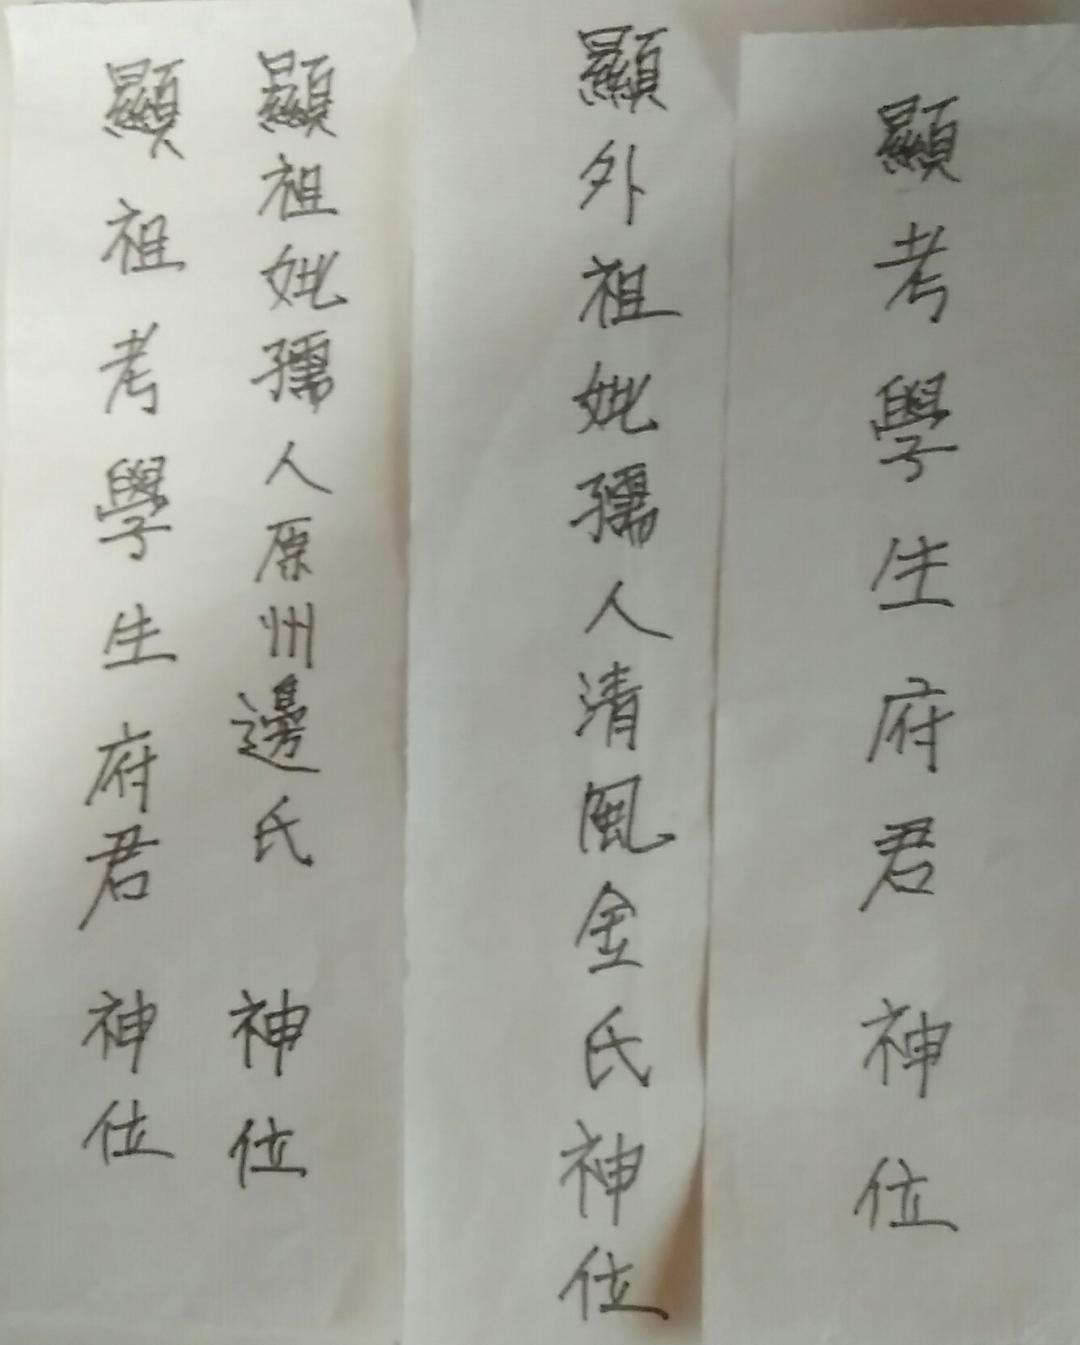 顯考學生府君 神位
顯外祖妣孺人清風金氏神位
顯祖妣孺人原州邊氏 神位
顯祖考學生府君 神位